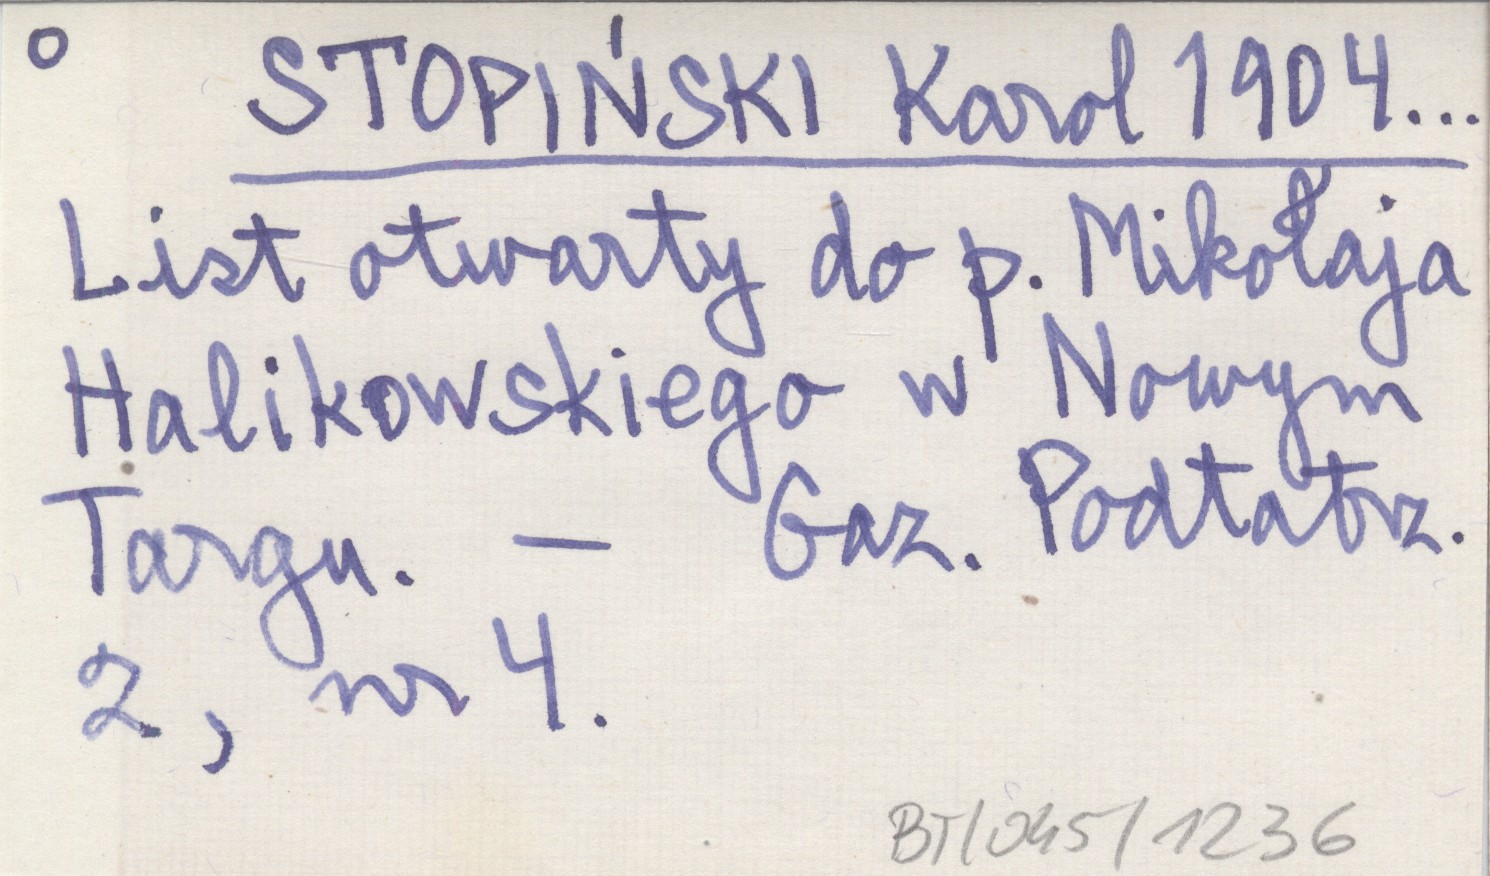 o STOPIŃSKI Karol 1904...
List otwarty do p. Mikołaja
Halikowskiego w Nowym
Targu. — Gaz. Podtatrz.
2, nr 4.
BT/045/1236